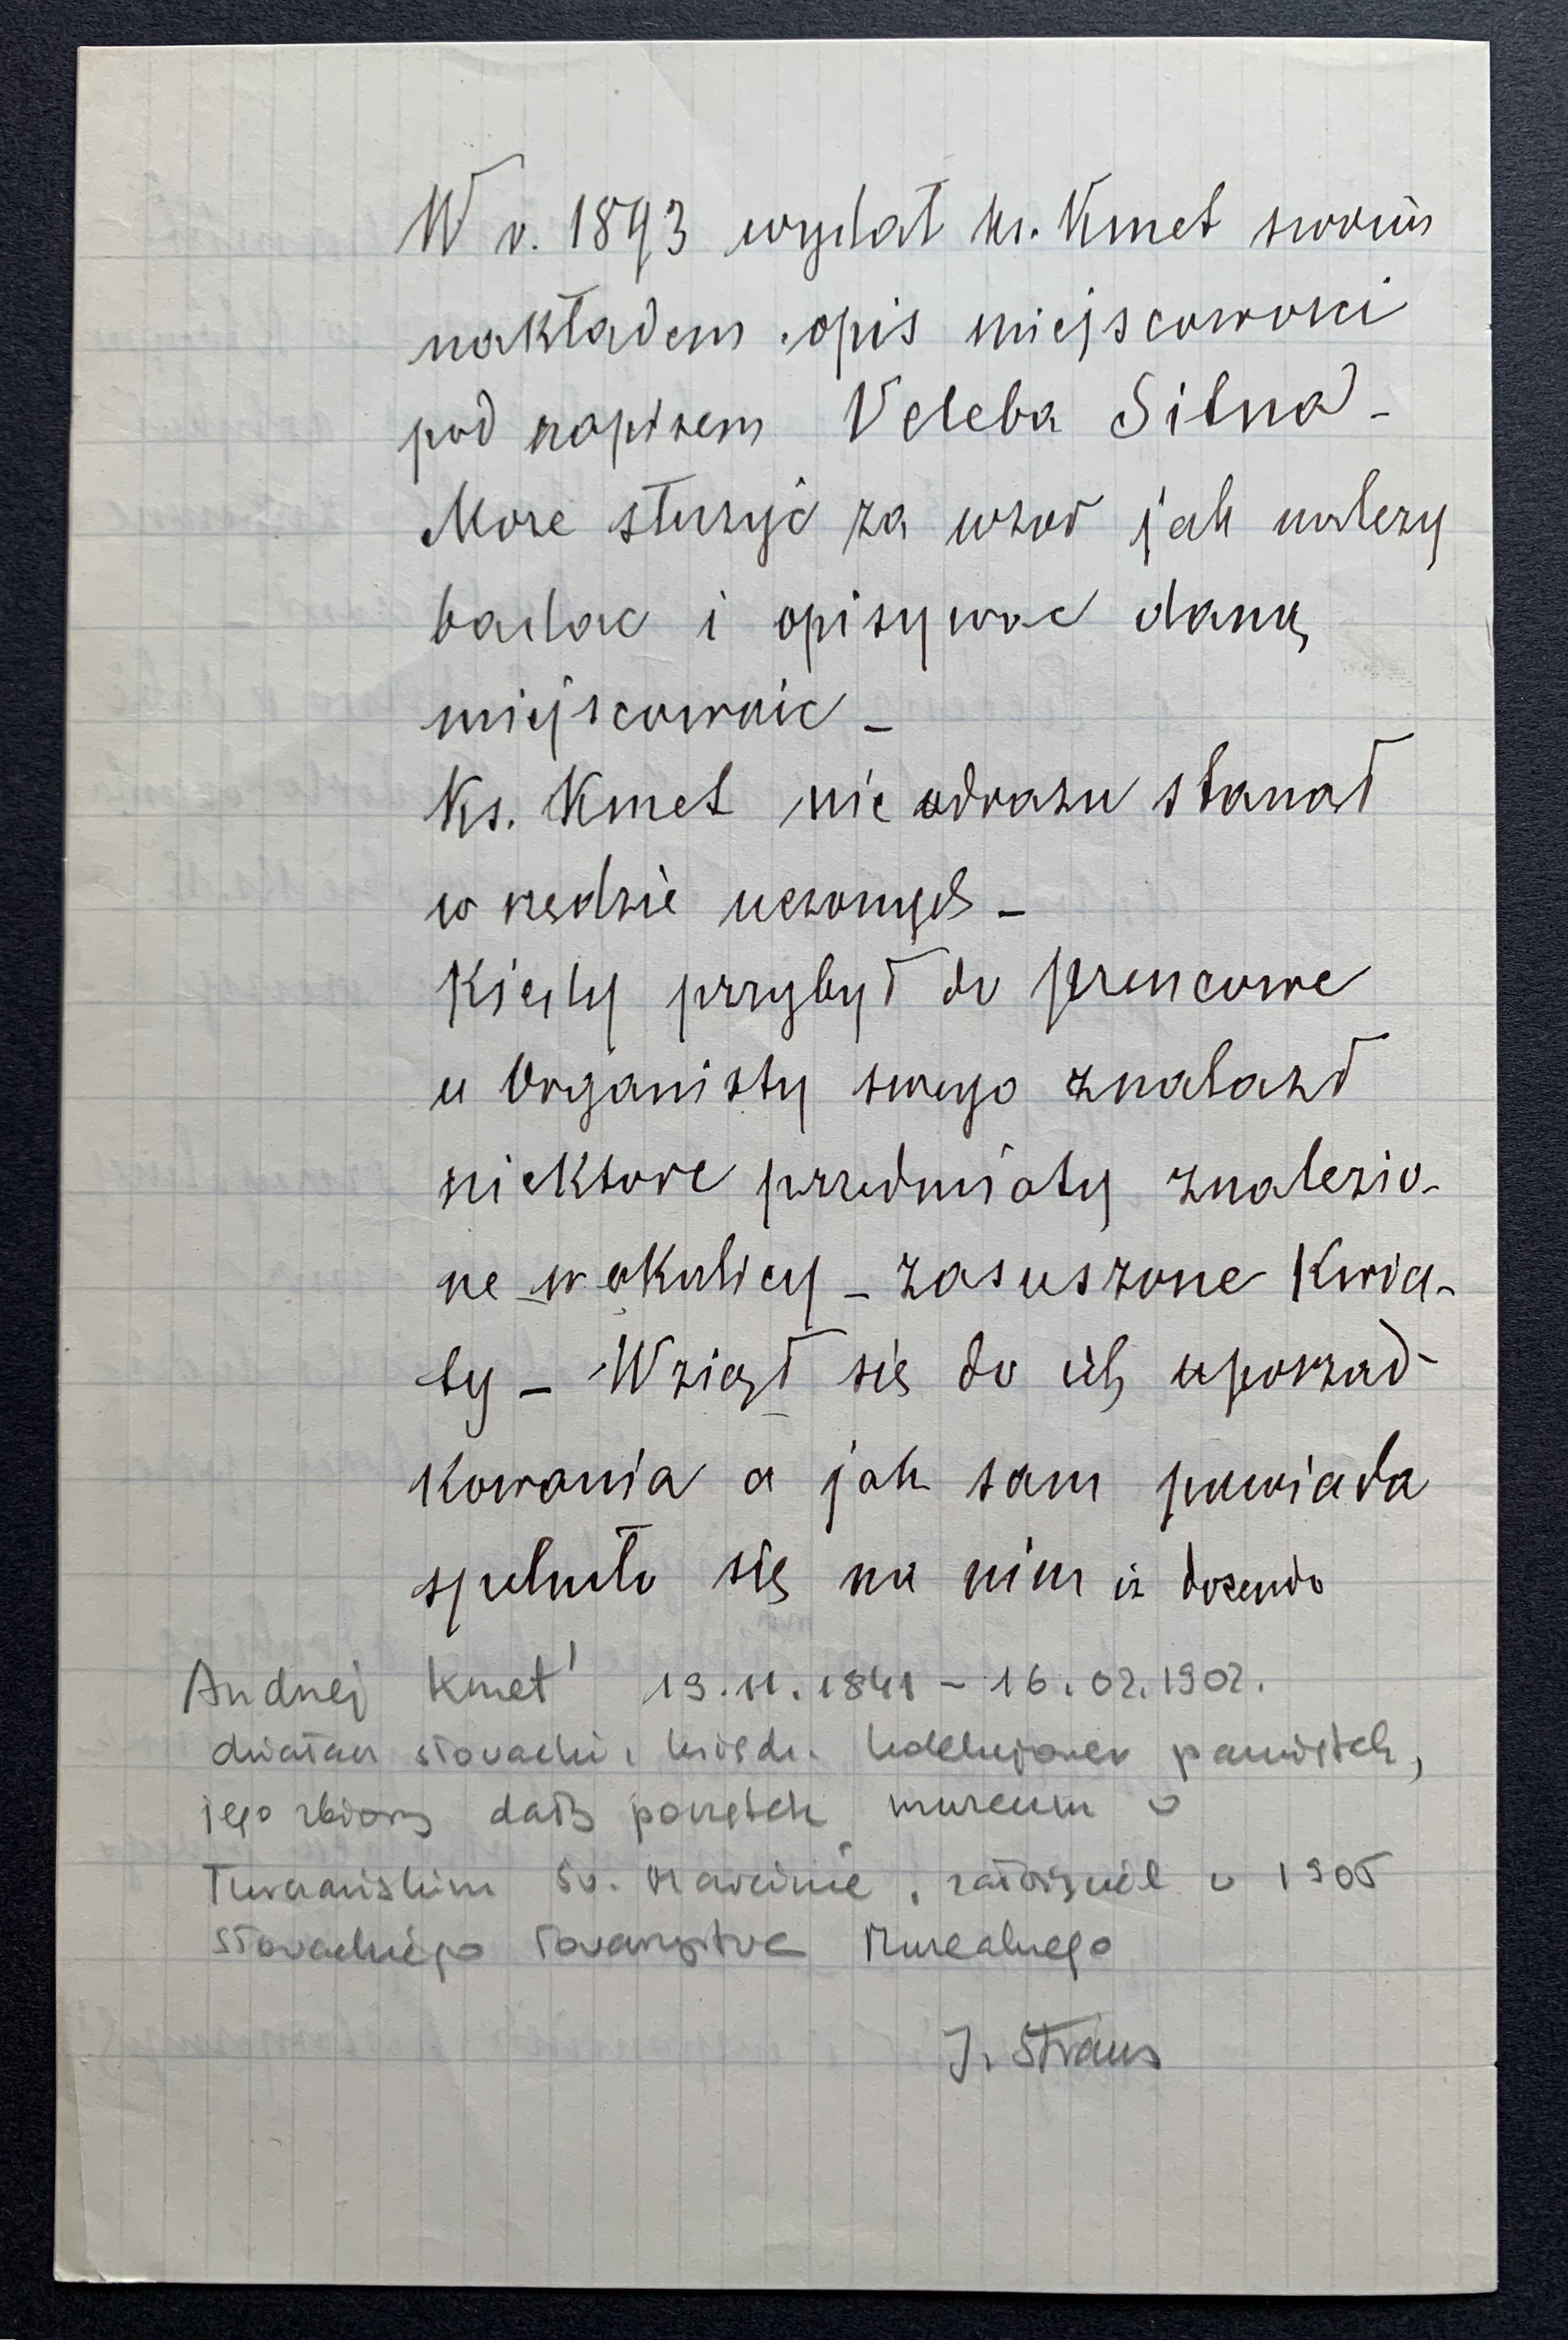 W r. 1893 wydał ks. Kmet swoim
nakładem opis miejscowosci
pod napisem Veleba Sitna -
Moze słuzyć za wzor jak nalezy
badac i opisywac daną
miejscowość -
Ks. Kmet nie odrazu stanał
w rzędzie uczonych -
Kiedy przybył do Prencowe
u Organisty swego znalazł
niektore przedmioty znalezio-
ne w okolicy - zasuszone Kwia-
ty - Wziął się do ich uporzad-
kowania a jak sam powiada
spełniło się na nim iz docendo
Andrej Kmet' 19.11.1841 - 16.02.1902.
działacz słowacki, ksiądz. kolekcjoner pamiątek,
jego zbiory dały początek muzeum w
Turczańskim Św. Marcinie, założyciel w 1905
Słowackiego Towarzystwa Muzealnego
J. Straus